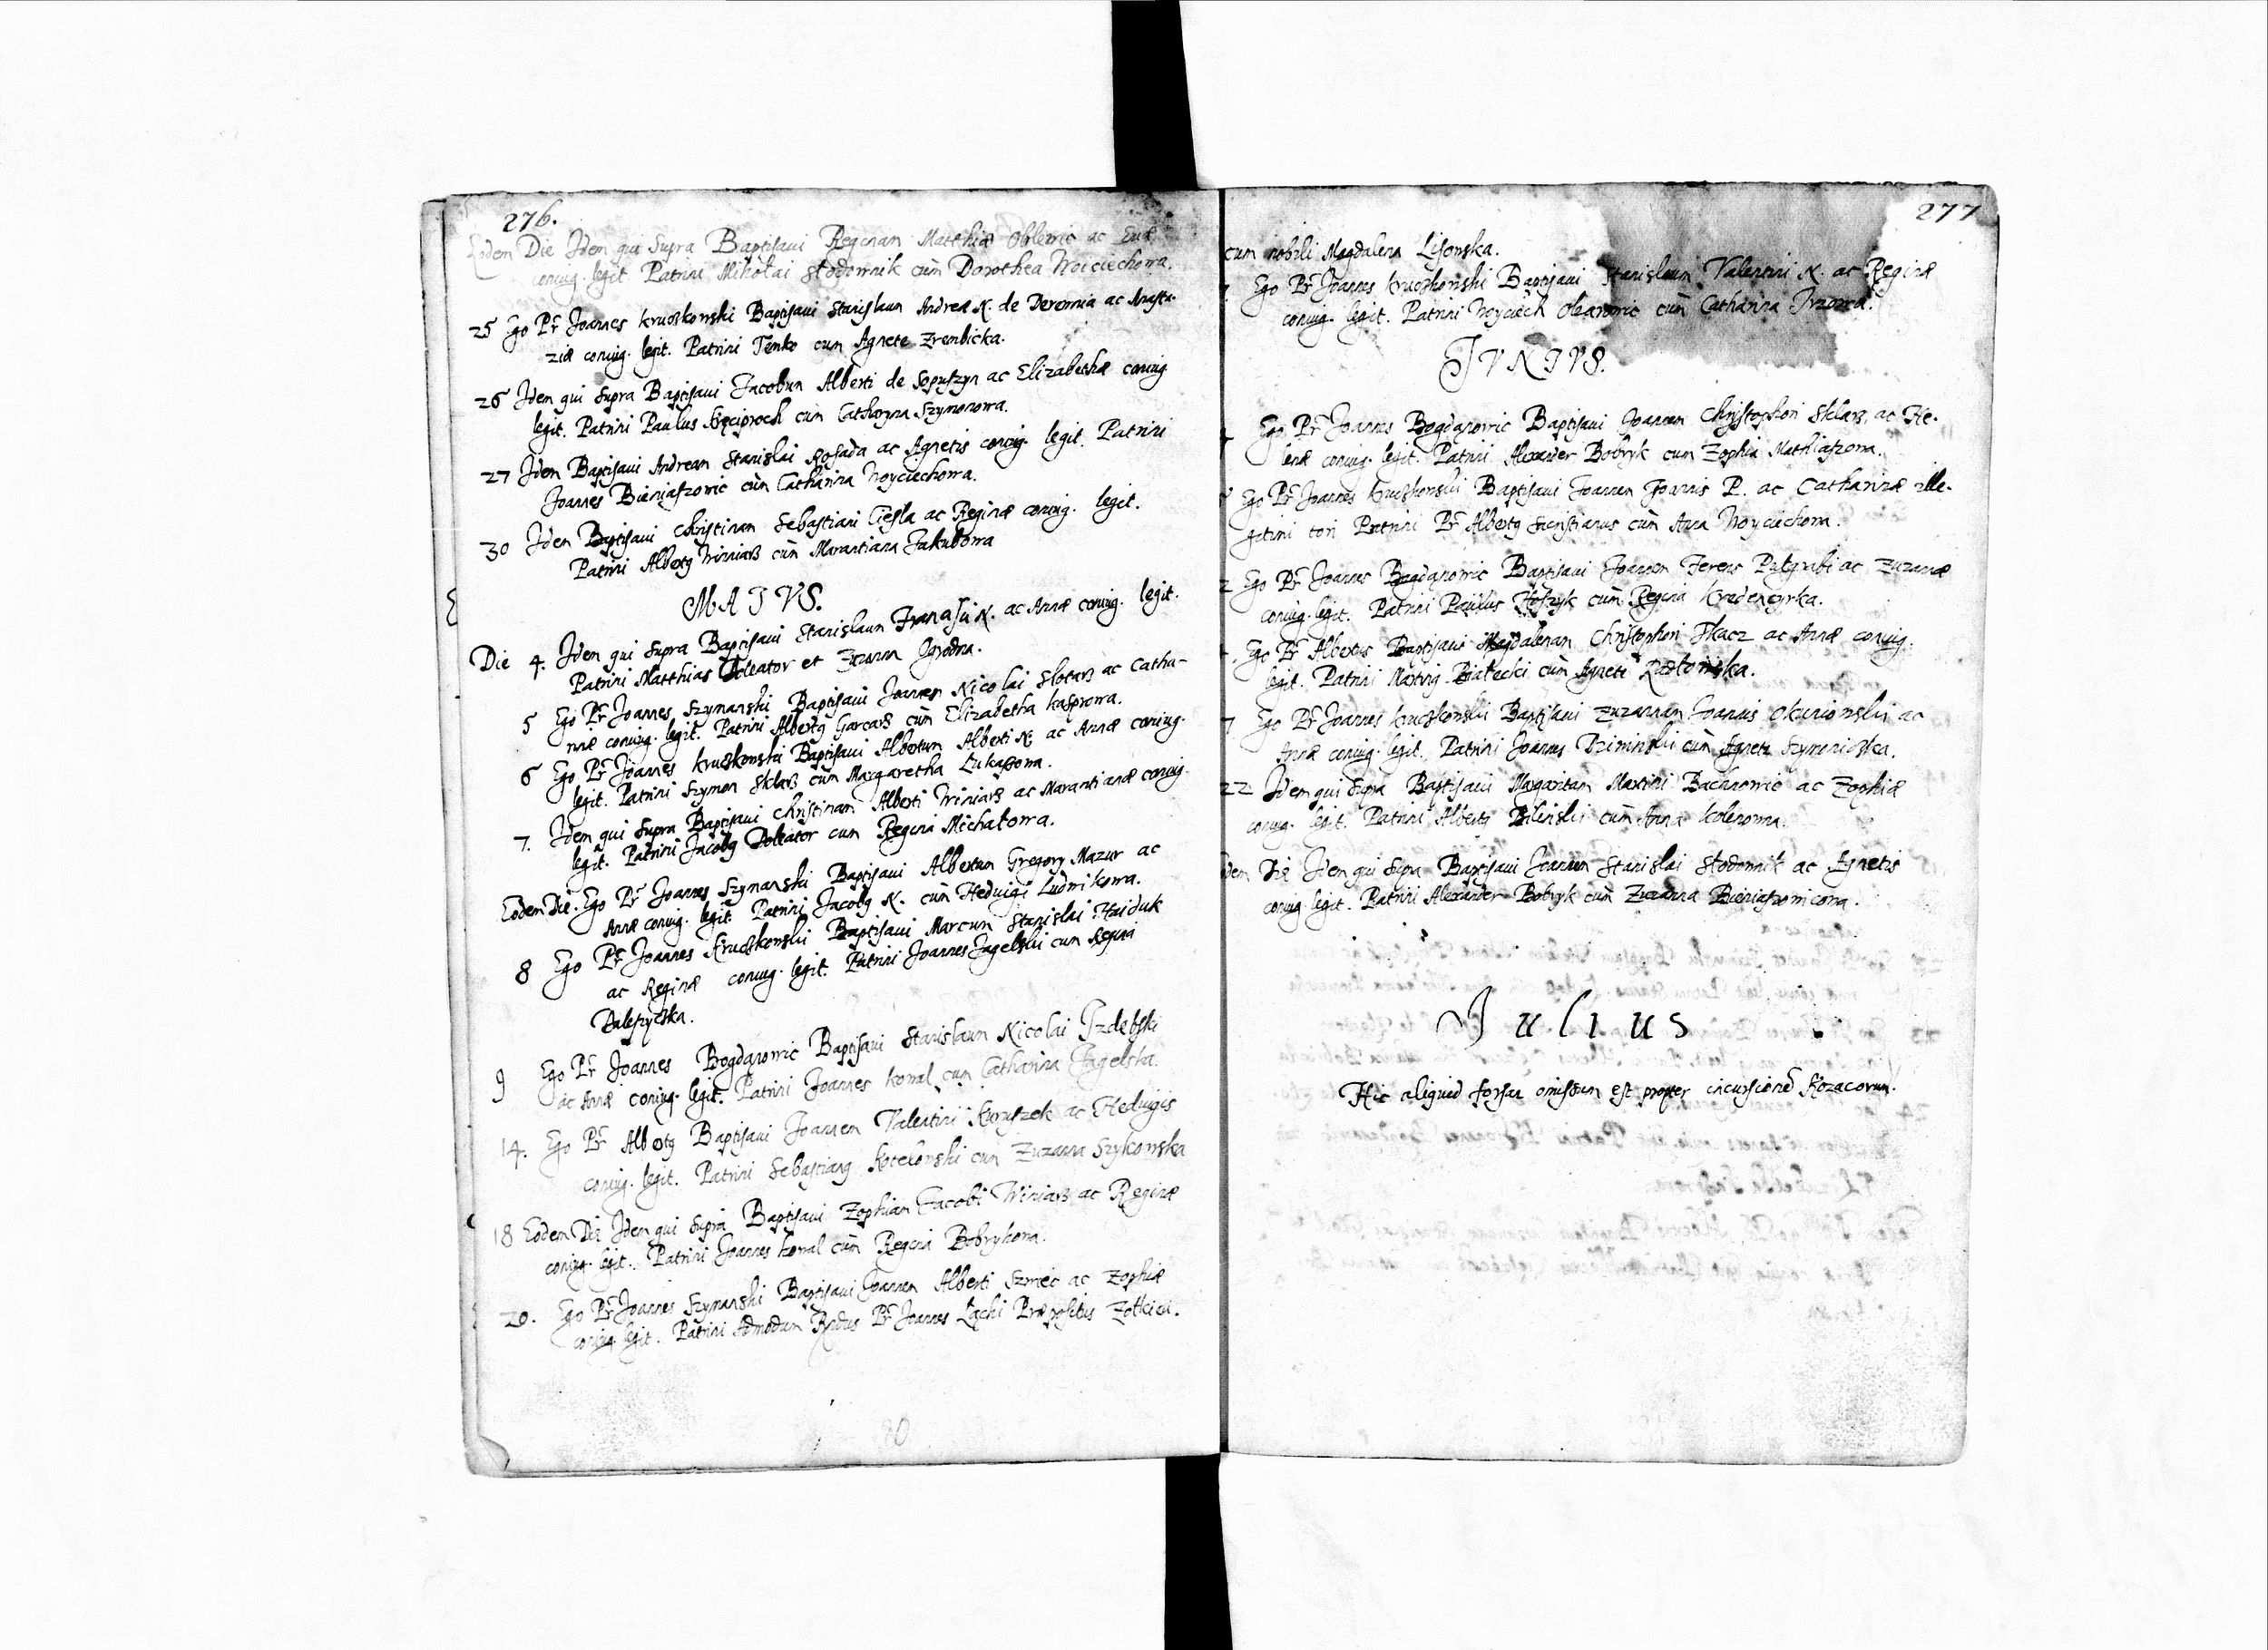 276.
Eodem Die Idem qui supra Baptisaui Reginam Matthiæ Oblewic ac Euæ
coniug. legit. Patrini Mikołai słodownik cum Dorothea Woiciechowa.
25 Ego Pr Joannes Kruczkowski Baptisaui Stanislaum Andreæ N. de Derewnia ac Anasta-
ziæ coniug. legit. Patrini Temko cum Agnete Zrembicka.
26 Idem qui supra Baptisaui Jacobum Alberti de Soputzyn ac Elizabethæ coniug.
legit. Patrini Paulus cum Catharina Szymonowa.
27 Idem Baptisaui Andream Stanislai Rosada ac Agnetis coniug. legit. Patrini
Joannes Bieniaszowic cum Catharina Woyciechowa.
30 Idem Baptisaui Christinam Sebastiani Ciesla ac Reginæ coniug. legit.
Patrini Albertg Winiarz cum Marantiana Jakubowa
MAIVS.
Die 4. Idem qui supra Baptisaui Stanislaum Francisci N. ac Annæ coniug. legit.
Patrini Matthias Doleator et Zuzanna
5 Ego Pr Joannes Szymanski Baptisaui Joannem Nicolai Slotarz ac Catha-
rinæ coniug. legit. Patrini Albertg Garcarz cum Elizabetha Kasprowa.
6 Ego Pr Joannes Kruczkowski Baptisaui Albertum Alberti N. ac Annæ coniug.
legit. Patrini Szymon Sklarz cum Margaretha Lukaszowa.
7. Idem qui supra Baptisaui Christinam Alberti Winiarz ac Marantianæ coniug.
legit. Patrini Jacobg Doleator cum Regina Michałowa.
Eodem Die. Ego Pr Joannes Szymanski Baptisaui Albertum Gregory Mazur ac
Annæ coniug. legit. Patrini Jacobg N. cum Heduigi Ludwikowa.
8 Ego Pr Joannes Kruczkowski Baptisaui Marcum Stanislai Haiduk
ac Reginæ coniug. legit. Patrini Joannes Jagelski cum Regina
Daleszycka.
9 Ego Pr Joannes Bogdanowic Baptisaui Stanislaum Nicolai Izdebski
ac Annæ coniug. legit. Patrini Joannes Kowal cum Catharina Jagelska.
14. Ego Pr Albertg Baptisaui Joannem Valentini Kuruszek ac Heduigis
coniug. legit. Patrini Sebastiang Kotelowski cum Zuzanna Szykowska
18 Eodem Die Idem qui supra Baptisaui Zophiam Jacobi Winiarz ac Reginæ
coniug. legit. Patrini Joannes Kowal cum Regina Bobrykowa.
20. Ego Pr Joannes Szymanski Baptisaui Joannem Alberti Szwiec ac Zophiæ
coniug. legit. Patrini Admodum Rndus Pr Joannes Łącki Præpositus Zołkiew.
277
cum nobili Magdalena Lisowska.
Ego Pr Joannes Kruczkowski Baptisaui Stanislaum Valentini N. ac Reginæ
coniug. legit. Patrini Woyciech Olearowic cum Catharina
IVNIVS.
Ego Pr Joannes Bogdanowic Baptisaui Joannem Christophori Sklarz, ac He-
lenæ coniug. legit. Patrini Alexander Bobryk cum Zophia Mathiaszowa.
Ego Pr Joannes Kruczkowski Baptisaui Joannem Joannis P. ac Catharinæ ille-
gitimi tori Patrini Pr Albertg Sacristianus cum Anna Woyciechowa.
2 Ego Pr Joannes Bogdanowic Baptisaui Joannem Ferens ac Zuzannæ
coniug. legit. Patrini Paulus cum Regina Kredencyrka.
Ego Pr Albertus Baptisaui Magdalenam Christophori Tkacz ac Annæ coniug.
legit. Patrini Białecki cum Agnete
7 Ego Pr Joannes Kruczkowski Baptisaui Zuzannam Joannis Okuniowski ac
Annæ coniug. legit. Patrini Joannes cum Agnete
22 Idem qui supra Baptisaui Margaritam Martini Bachnowic ac Zophiæ
coniug. legit. Patrini Albertg Bilinski cum Anna
dem Die Idem qui supra Baptisaui Joannem Stanislai Słodownik ac Agnetis
coniug. legit. Patrini Alexander Bobryk cum Zuzanna Bieniaszowicowa.
Julius
Hic aliquid forsan omissum est propter incursionem Kozacorum.